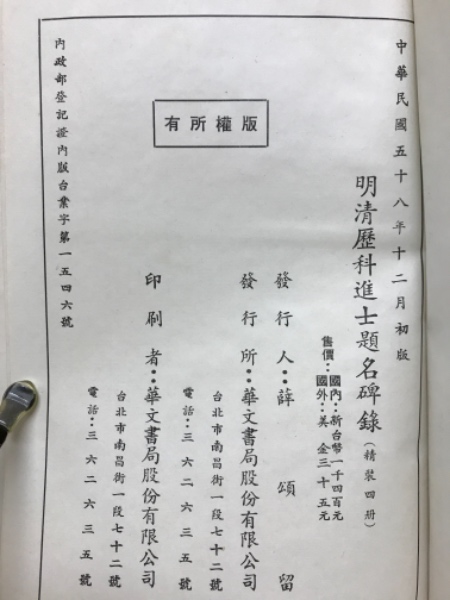 中華民國五十八年十二月初版
明清歷科進士題名碑錄(精裝四册)
售價：國內：新台幣一千四百元
國外：美金三十五元
發行人：薛頌留
發行所：華文書局股份有限公司
台北市南昌街一段七十二號
電話：三六二六三五號
印刷者：華文書局股份有限公司
台北市南昌街一段七十二號
電話：三六二六三五號
版權所有
內政部登記證內版台業字第一五四六號